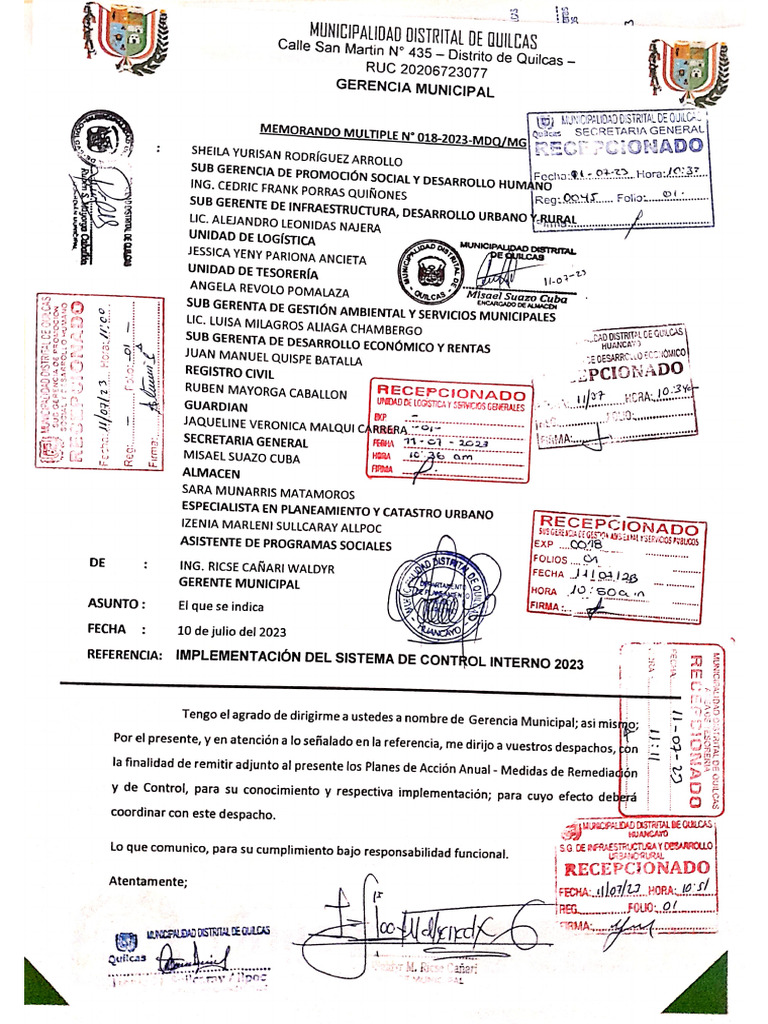 MUNICIPALIDAD DISTRITAL DE QUILCAS
Calle San Martin N° 435 – Distrito de Quilcas –
RUC 20206723077
GERENCIA MUNICIPAL
MEMORANDO MULTIPLE N° 018-2023-MDQ/MG
MUNICIPALIDAD DISTRITAL DE QUILCAS
Quilcas SECRETARIA GENERAL
RECEPCIONADO
Fecha: 11-07-23 Hora: 10:37
Reg: 0045 Folio: 01
Firma:
: SHEILA YURISAN RODRÍGUEZ ARROLLO
SUB GERENCIA DE PROMOCIÓN SOCIAL Y DESARROLLO HUMANO
ING. CEDRIC FRANK PORRAS QUIÑONES
SUB GERENTE DE INFRAESTRUCTURA, DESARROLLO URBANO Y RURAL
LIC. ALEJANDRO LEONIDAS NAJERA
UNIDAD DE LOGÍSTICA
JESSICA YENY PARIONA ANCIETA
UNIDAD DE TESORERÍA
ANGELA REVOLO POMALAZA
SUB GERENTA DE GESTIÓN AMBIENTAL Y SERVICIOS MUNICIPALES
LIC. LUISA MILAGROS ALIAGA CHAMBERGO
SUB GERENTA DE DESARROLLO ECONÓMICO Y RENTAS
JUAN MANUEL QUISPE BATALLA
REGISTRO CIVIL
RUBEN MAYORGA CABALLON
GUARDIAN
JAQUELINE VERONICA MALQUI CARRERA
SECRETARIA GENERAL
MISAEL SUAZO CUBA
ALMACEN
SARA MUNARRIS MATAMOROS
ESPECIALISTA EN PLANEAMIENTO Y CATASTRO URBANO
IZENIA MARLENI SULLCARAY ALLPOC
ASISTENTE DE PROGRAMAS SOCIALES
MUNICIPALIDAD DISTRITAL DE
- QUILCAS -
MUNICIPALIDAD DISTRITAL
DE QUILCAS
11-07-23
Misael Suazo Cuba
ENCARGADO DE ALMACEN
Ruben S. Mayorga Caballon
MUNICIPALIDAD DISTRITAL DE QUILCAS
SUB GERENCIA DE PROMOCIÓN
SOCIAL Y DESARROLLO HUMANO
RECEPCIONADO
Fecha: 11/07/23 Hora: 11:00
Reg: — Folio: -01-
Firma:
DISTRITAL DE QUILCAS
HUANCAYO
DE DESARROLLO ECONÓMICO
RECEPCIONADO
11/07 HORA: 10:34
FOLIO:
FIRMA:
RECEPCIONADO
UNIDAD DE LOGISTICA Y SERVICIOS GENERALES
EXP -
-01-
FECHA 11-07-2023
HORA 10:36 am
FIRMA
RECEPCIONADO
SUB GERENCIA DE GESTIÓN AMBIENTAL Y SERVICIOS PÚBLICOS
EXP 0018
FOLIOS 01
FECHA 11/07/23
HORA 10:50 am
FIRMA:
DE : ING. RICSE CAÑARI WALDYR
GERENTE MUNICIPAL
ASUNTO : El que se indica
FECHA : 10 de julio del 2023
REFERENCIA: IMPLEMENTACIÓN DEL SISTEMA DE CONTROL INTERNO 2023
MUNICIPALIDAD DISTRITAL DE QUILCAS
HUANCAYO
MUNICIPALIDAD DISTRITAL DE QUILCAS
RECEPCIONADO
FECHA: 11-07-23
HORA: 11:11
Tengo el agrado de dirigirme a ustedes a nombre de Gerencia Municipal; asi mismo;
Por el presente, y en atención a lo señalado en la referencia, me dirijo a vuestros despachos, con
la finalidad de remitir adjunto al presente los Planes de Acción Anual - Medidas de Remediación
y de Control, para su conocimiento y respectiva implementación; para cuyo efecto deberá
coordinar con este despacho.
Lo que comunico, para su cumplimiento bajo responsabilidad funcional.
Atentamente;
MUNICIPALIDAD DISTRITAL DE QUILCAS
HUANCAYO
S.G. DE INFRAESTRUCTURA Y DESARROLLO
URBANO/RURAL
RECEPCIONADO
FECHA: 11/07/23 HORA: 10:51
REG. FOLIO: 01
FIRMA:
MUNICIPALIDAD DISTRITAL DE QUILCAS
Quilcas
M. Ricse Cañari